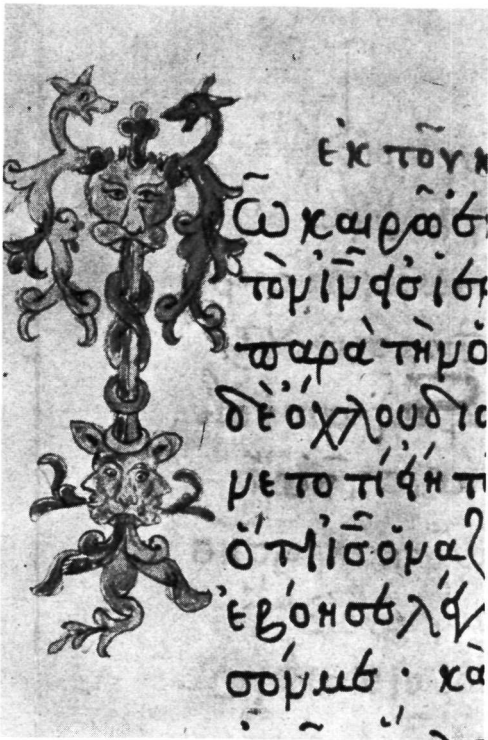 ἐκ τοῦ κ
ῶ καιρῶ ἐ
τὸν ἰν̅ εἰς ἱε
παρὰ τὴν ὁ
δὲ ὄχλου δια
νετο τί εἴη τ
ὅτι ἰς̅ ὁ ναζ
ἐβόησε λέγ
σόν με · κα